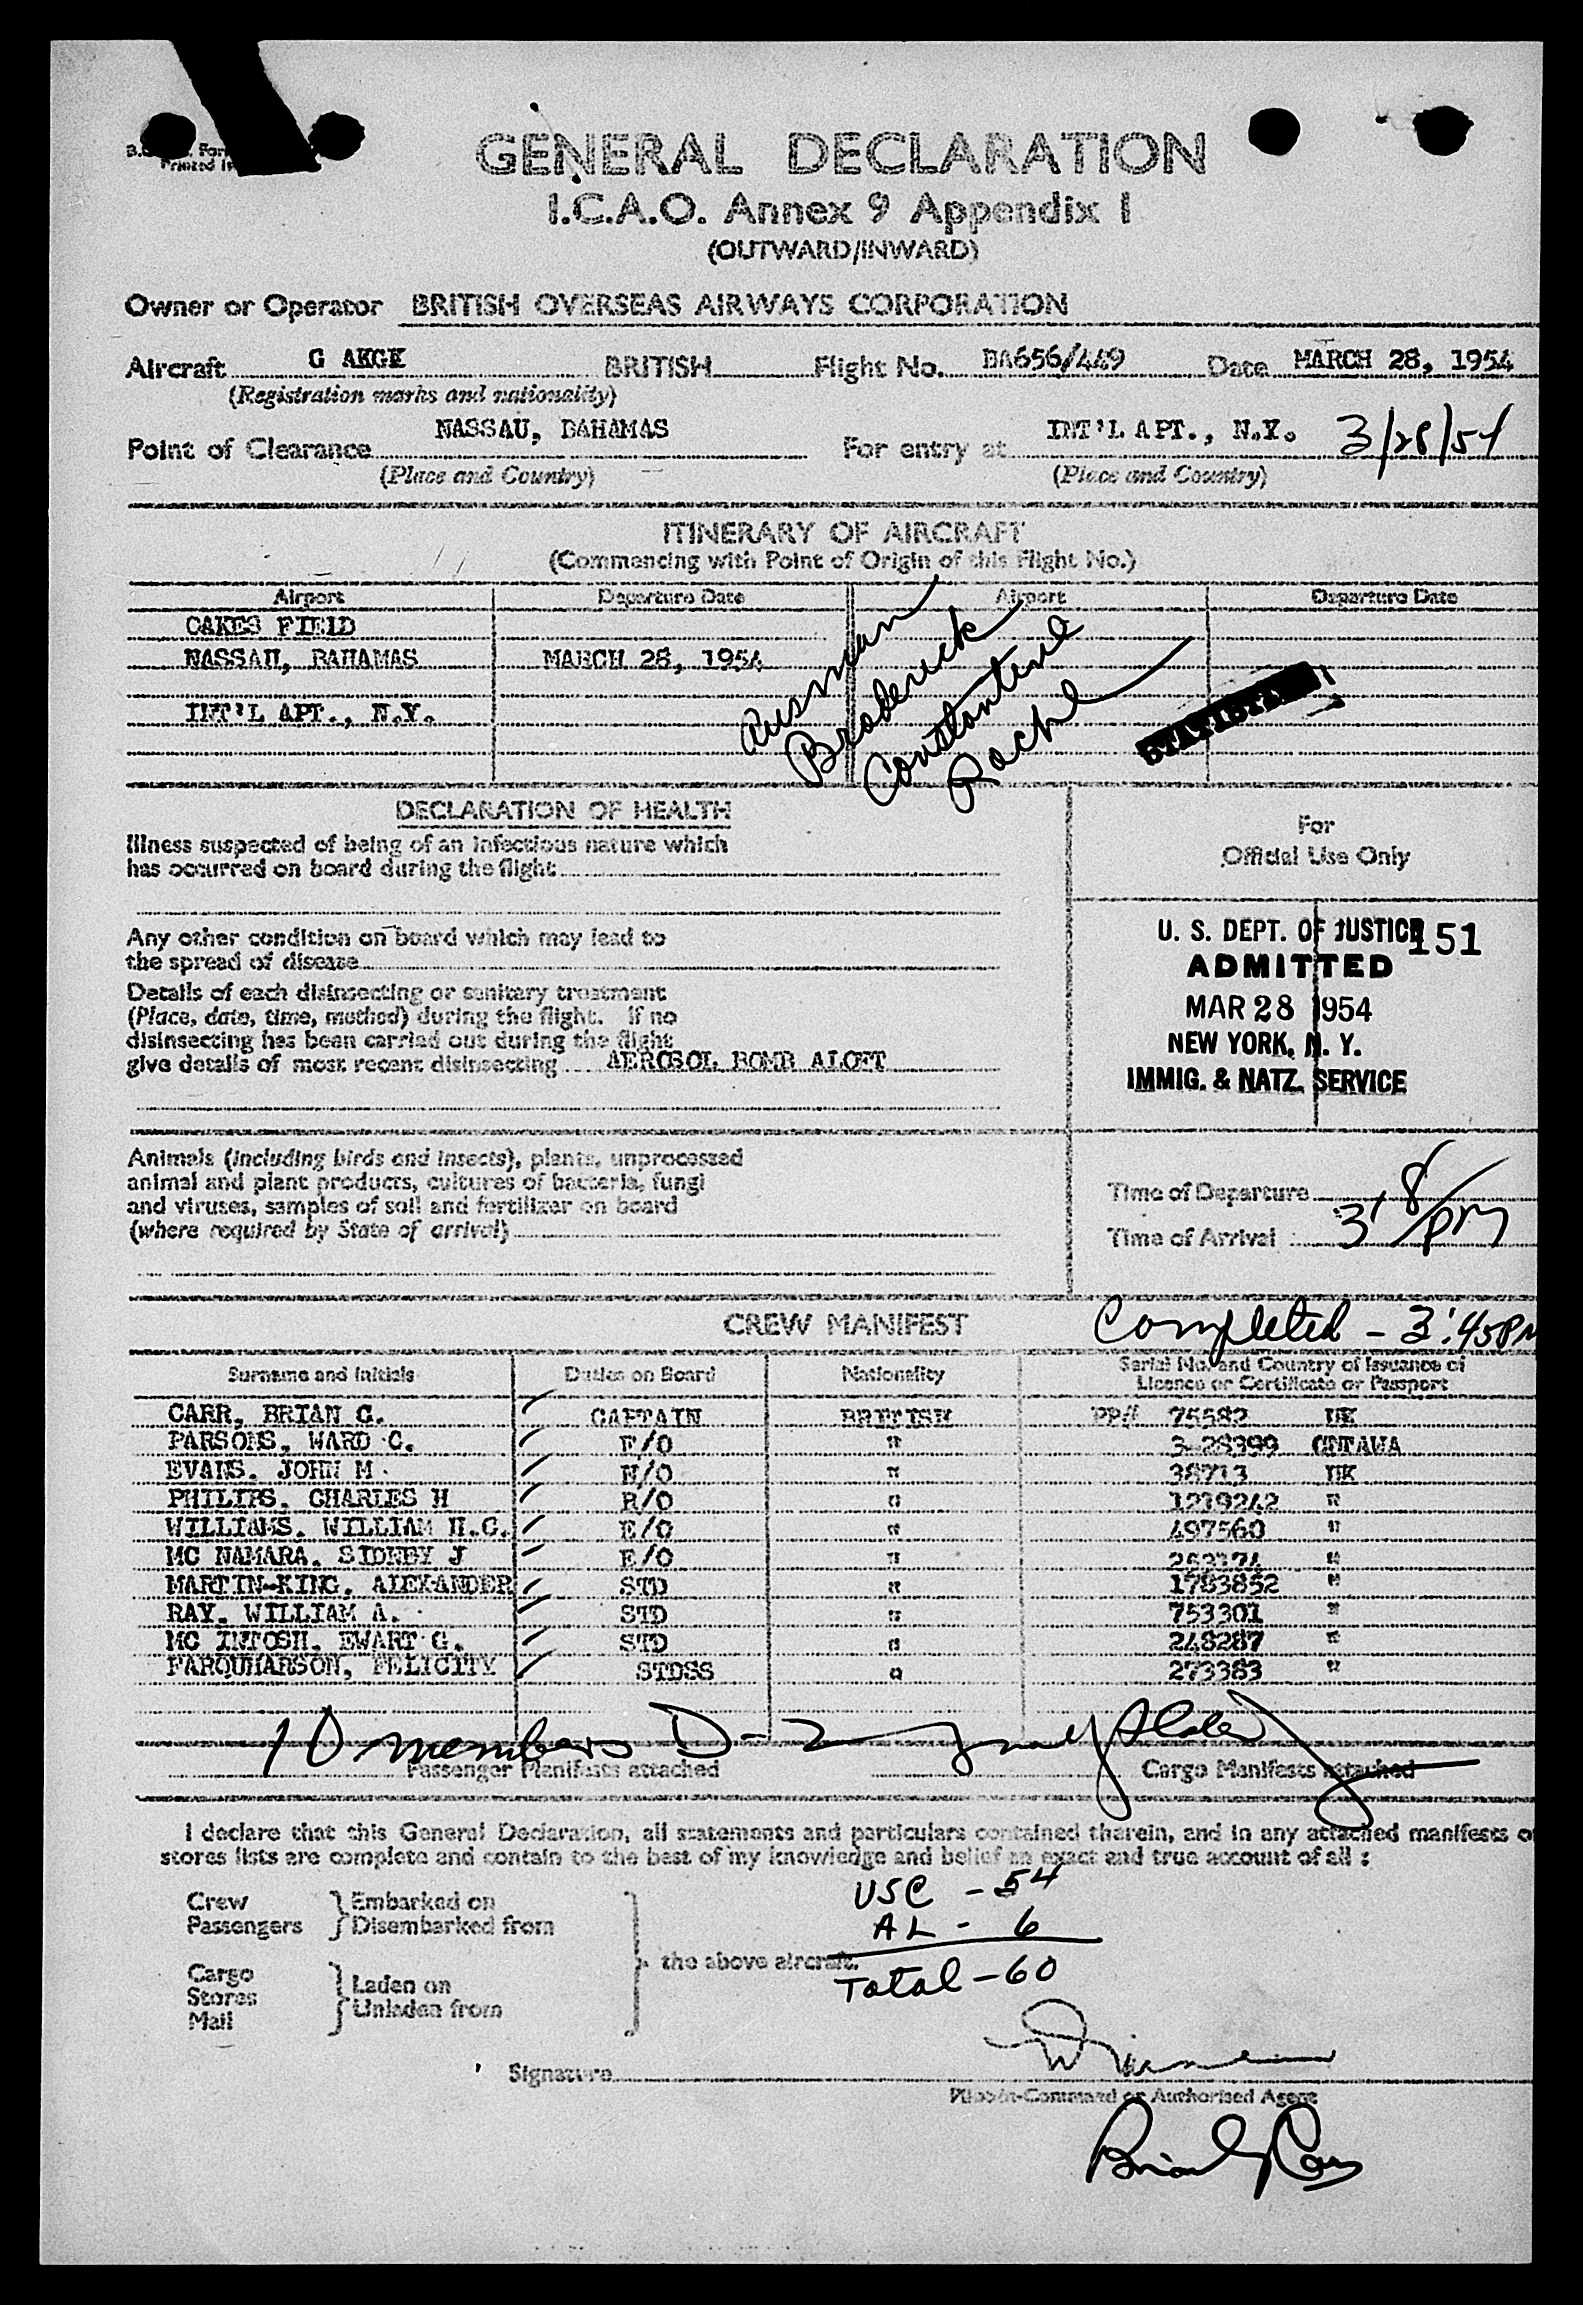 GENERAL DECLARATION
I.C.A.O. Annex 9 Appendix 1
(OUTWARD/INWARD)
Owner or Operator BRITISH OVERSEAS AIRWAYS CORPORATION
Aircraft G AKGK BRITISH Flight No. BA656/449 Date MARCH 28, 1954
(Registration marks and nationality)
Point of Clearance NASSAU, BAHAMAS For entry at INT'L APT., N.Y. 3/28/54
(Place and Country) (Place and Country)
ITINERARY OF AIRCRAFT
(Commencing with Point of Origin of this Flight No.)
Airport Departure Date Airport Departure Date
OAKES FIELD
NASSAU, BAHAMAS MARCH 28, 1954
INT'L APT., N.Y.
Broderick
Constantine
Roche
DECLARATION OF HEALTH
Illness suspected of being of an infectious nature which
has occurred on board during the flight
Any other condition on board which may lead to
the spread of disease
Details of each disinsecting or sanitary treatment
(Place, date, time, method) during the flight. If no
disinsecting has been carried out during the flight
give details of most recent disinsecting AEROSOL BOMB ALOFT
For
Official Use Only
U. S. DEPT. OF JUSTICE 151
ADMITTED
MAR 28 1954
NEW YORK, N. Y.
IMMIG. & NATZ. SERVICE
Animals (including birds and insects), plants, unprocessed
animal and plant products, cultures of bacteria, fungi
and viruses, samples of soil and fertilizer on board
(where required by State of arrival)
Time of Departure
Time of Arrival
CREW MANIFEST Completed - 3:45PM
Surname and Initials Duties on Board Nationality Serial No. and Country of Issuance of
Licence or Certificate or Passport
CARR, BRIAN G. CAPTAIN BRITISH PP# 75582 UK
PARSONS, WARD C. F/O " 3-28399 OTTAWA
EVANS, JOHN M. N/O " 38713 UK
PHILIPS, CHARLES H R/O " 1219242 "
WILLIAMS, WILLIAM H.G. E/O " 497560 "
MC NAMARA, SIDNEY J E/O " "
MARTIN-KING, ALEXANDER STD " 1783852 "
RAY, WILLIAM A. STD " 753301 "
MC INTOSH, EWART G. STD " 248287 "
FARQUHARSON, FELICITY STDSS " 273383 "
10 members D-2
Passenger Manifests attached Cargo Manifests attached
I declare that this General Declaration, all statements and particulars contained therein, and in any attached manifests or
stores lists are complete and contain to the best of my knowledge and belief an exact and true account of all :
USC - 54
AL - 6
Total - 60
Crew Embarked on
Passengers Disembarked from
the above aircraft.
Cargo
Stores Laden on
Mail Unladen from
Signature
Pilot-in-Command or Authorised Agent